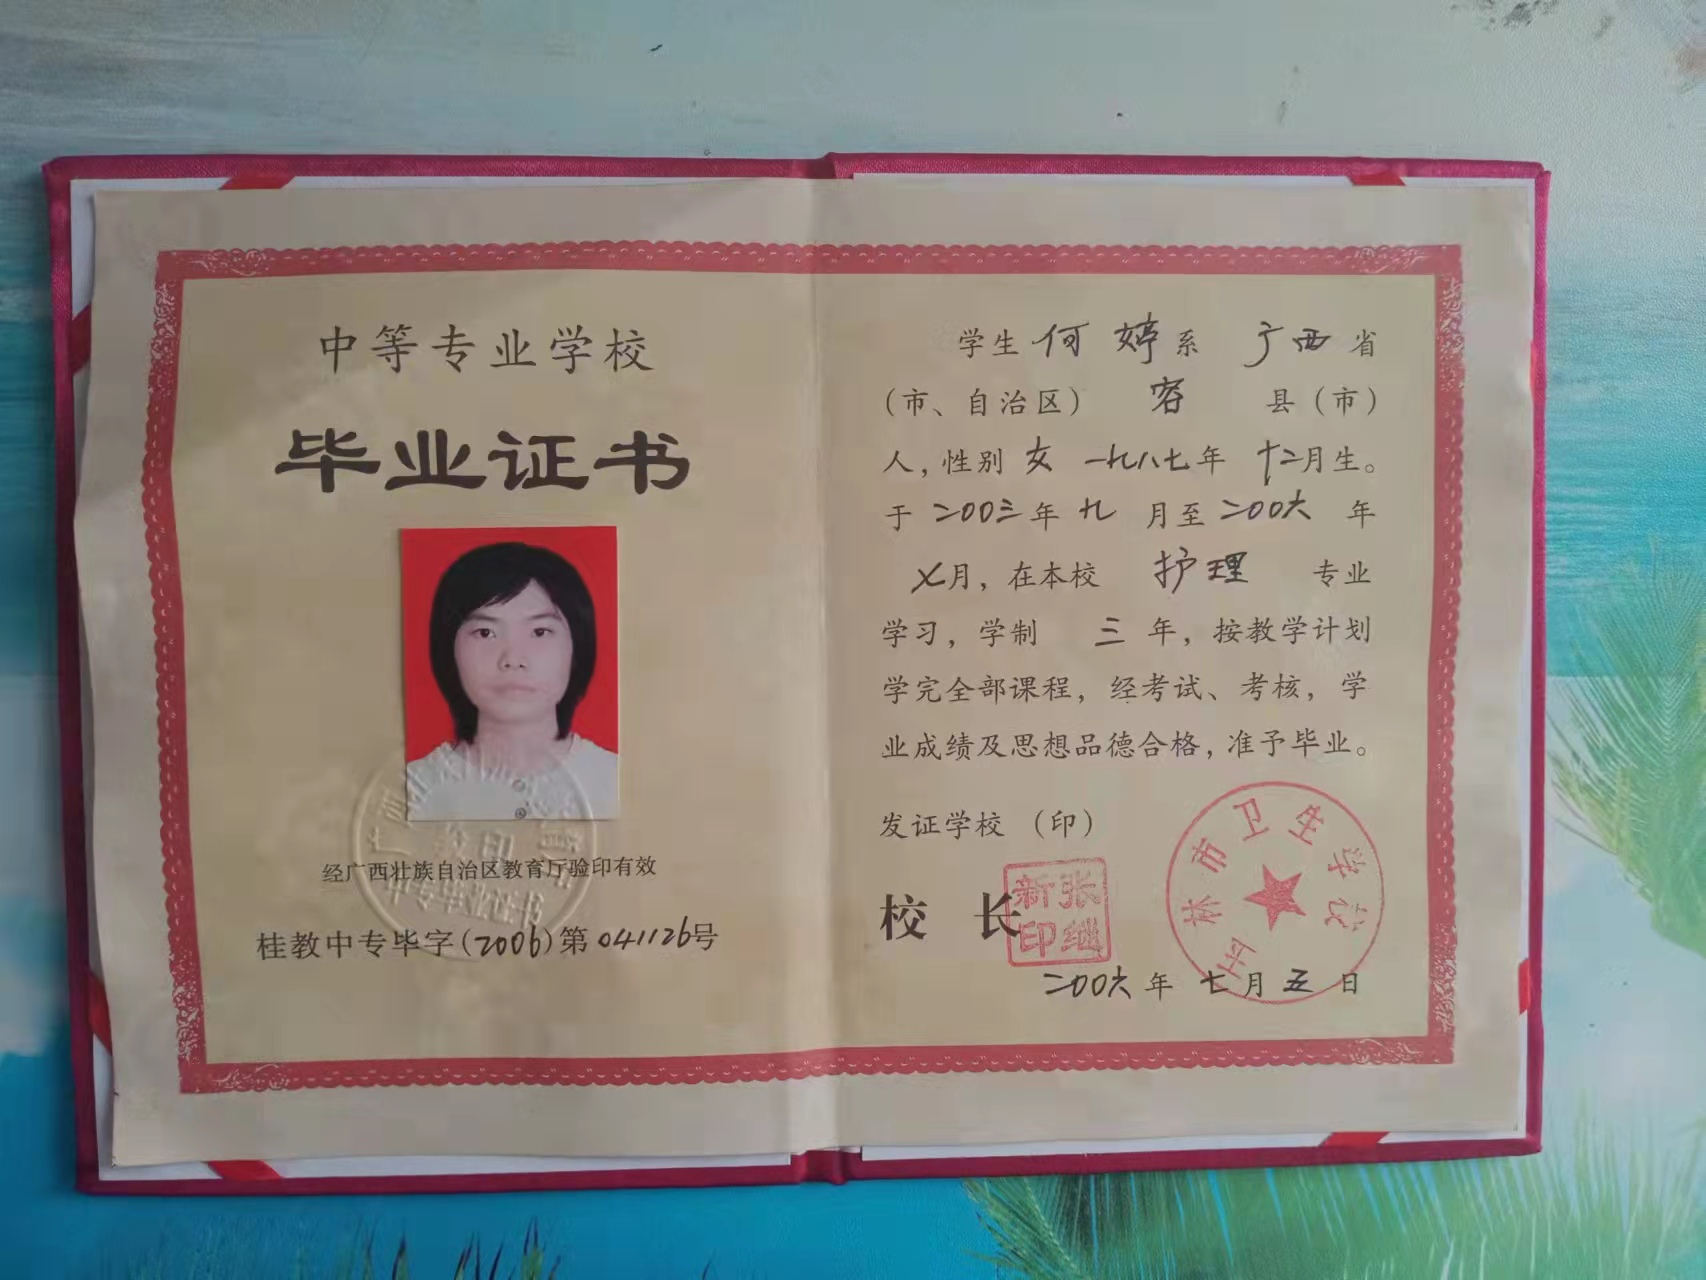 中等专业学校
毕业证书
经广西壮族自治区教育厅验印有效
桂教中专毕字(2006)第041126号
学生何婷系广西省
(市、自治区)容县(市)
人,性别女一九八七年十二月生。
于二00三年九月至二00六年
七月,在本校护理专业
学习,学制三年,按教学计划
学完全部课程,经考试、考核,学
业成绩及思想品德合格,准予毕业。
发证学校(印)
校长
张继新印
玉林市卫生学校
二00六年七月五日